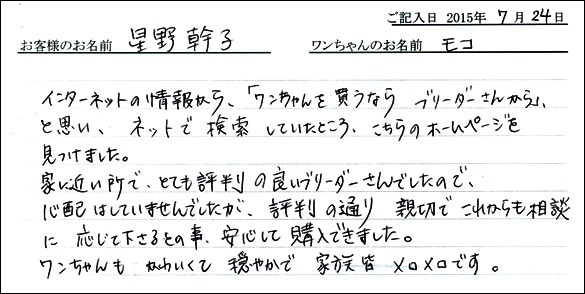 ご記入日 2015年 7月 24日
お客様のお名前 星野幹子 ワンちゃんのお名前 モコ
インターネットの情報から、「ワンちゃんを買うなら ブリーダーさんから」、
と思い、ネットで検索していたところ、こちらのホームページを
見つけました。
家に近い所で、とても評判の良いブリーダーさんでしたので、
心配はしていませんでしたが、評判の通り 親切でこれからも相談
に応じて下さるとの事、安心して購入できました。
ワンちゃんも かわいくて 穏やかで 家族皆 メロメロです。